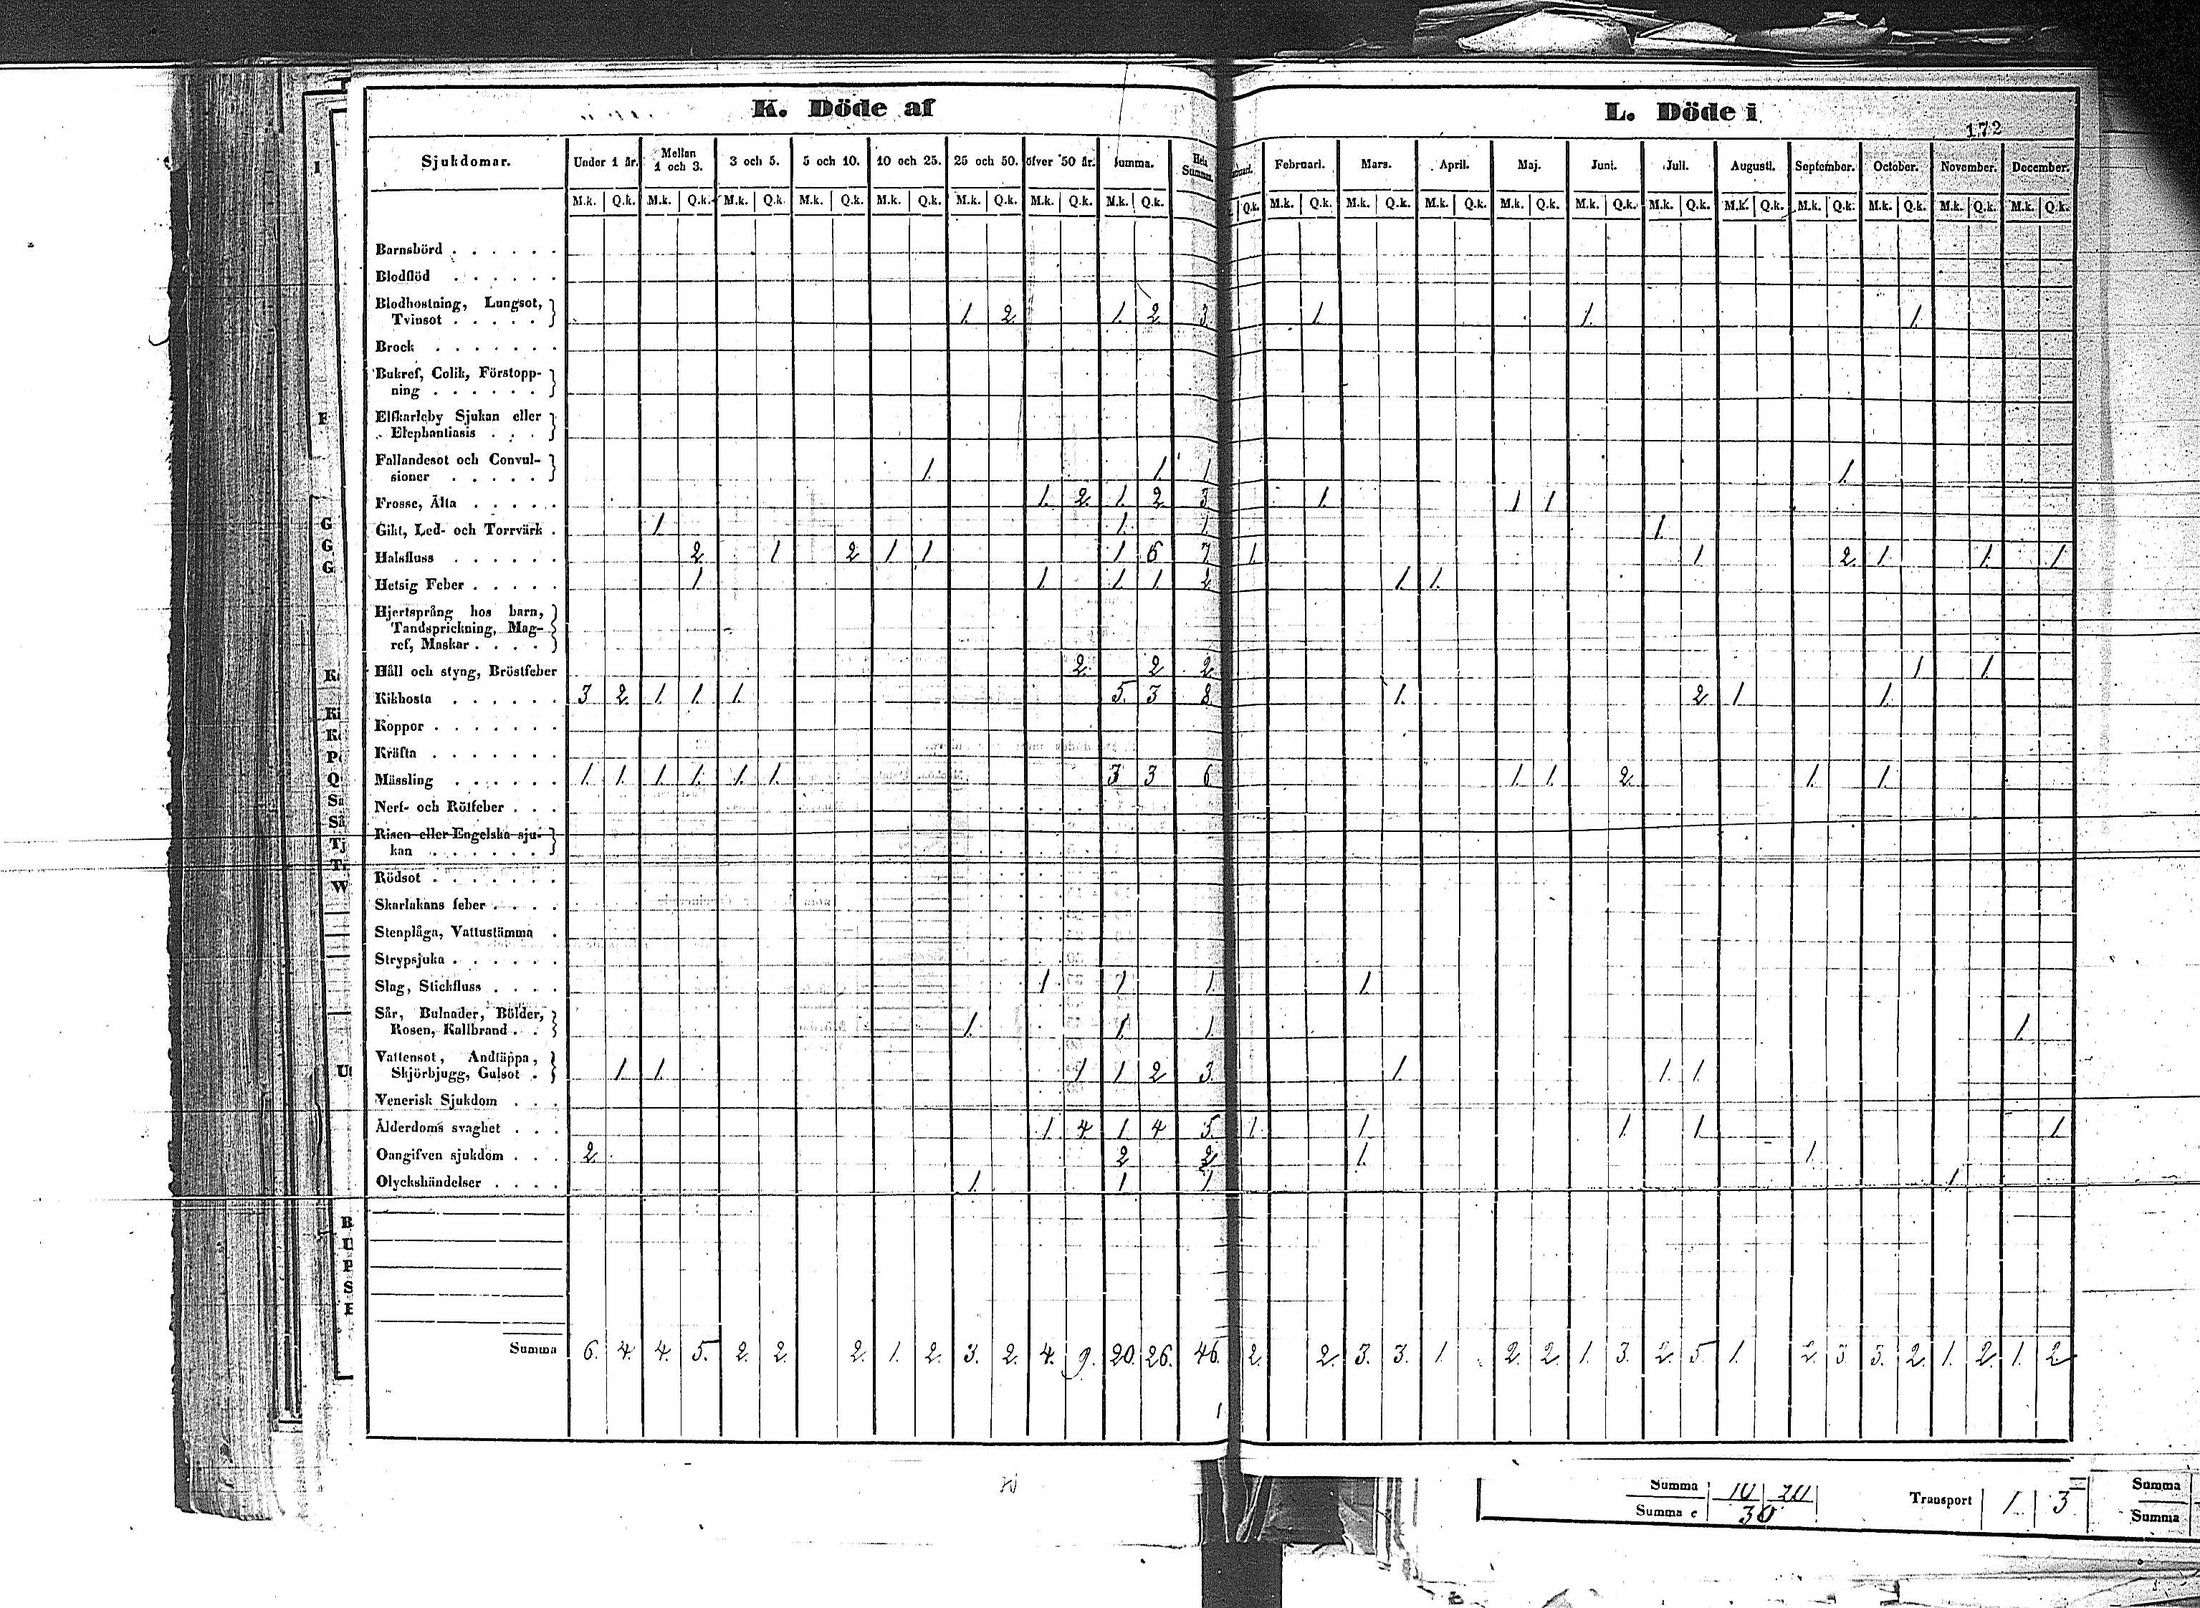 K. Döde af
L. Döde i
172
Sjukdomar. Under 1 år. Mellan 1 och 3. 3 och 5. 5 och 10. 10 och 25. 25 och 50. öfver 50 år. Summa. Hela Summa. Februari. Mars. April. Maj. Juni. Juli. Augusti. September. October. November. December.
M.k. Q.k. M.k. Q.k. M.k. Q.k. M.k. Q.k. M.k. Q.k. M.k. Q.k. M.k. Q.k. M.k. Q.k. Q.k. M.k. Q.k. M.k. Q.k. M.k. Q.k. M.k. Q.k. M.k. Q.k. M.k. Q.k. M.k. Q.k. M.k. Q.k. M.k. Q.k. M.k. Q.k. M.k. Q.k.
Barnsbörd
Blodflöd
Blodhostning, Lungsot,
Tvinsot 1. 2. 1. 2. 3. 1. 1. 1.
Brock
Bukref, Colik, Förstopp-
ning
Elfkarleby Sjukan eller
Elephantiasis
Fallandesot och Convul-
sioner 1. 1. 1 1.
Frosse, Älta 1. 2. 1. 2. 3 1. 1 1
Gikt, Led- och Torrvärk 1. 1. 1. 1.
Halsfluss 2. 1 2 1 1 1 6 7 1 1 2. 1 1. 1
Hetsig Feber 1 1. 1. 1 2 1. 1.
Hjertsprång hos barn,
Tandsprickning, Mag-
ref, Maskar
Håll och styng, Bröstfeber 2. 2 2 1. 1.
Kikhosta 3 2. 1. 1. 1. 5. 3 8 1. 2 1 1.
Koppor
Kräfta
Mässling 1. 1. 1. 1. 1. 1. 3 3 6 1. 1. 2 1. 1.
Nerf- och Rötfeber
Risen eller Engelska sju-
kan
Rödsot
Skarlakans feber
Stenplåga, Vattustämma
Strypsjuka
Slag, Stickfluss 1 1 1 1
Sår, Bulnader, Bölder,
Rosen, Kallbrand 1. 1. 1 1.
Vattensot, Andtäppa,
Skjörbjugg, Gulsot 1. 1. 1 1 2 3. 1. 1. 1.
Venerisk Sjukdom
Ålderdoms svaghet 1. 4 1. 4 5. 1. 1. 1. 1. 1
Oangifven sjukdom 2. 2 2 1. 1.
Olyckshändelser 1. 1 1 1
Summa 6. 4. 4. 5. 2. 2. 2. 1. 2. 3. 2. 4. 9. 20. 26. 46. 2. 2. 3. 3. 1. 2. 2. 1. 3. 2. 5 1. 2. 3 3. 2. 1. 2. 1. 2
Summa 10 20 Transport 1. 3 Summa
Summa 30 Summa